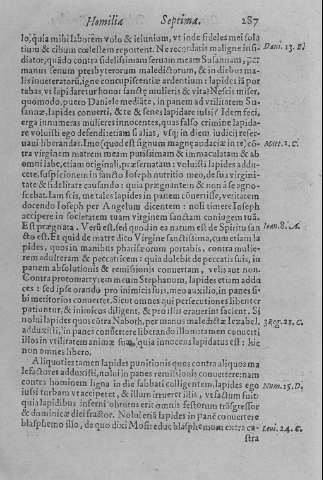 Homiliæ Septimæ. 287
lo, quia mihi laborem volo & ieiunium, vt inde fideles mei sola
tium & cibum cœlestem reportent. Ne recordatis maligne insi-
diator, quãdo contra fidelissimam seruam meam Susannam, per
manus senum presbyterorum maledictorum, & in diebus ma-
lis inueteratorũ, igne concupiscentiæ ardentium: lapides iã por
tabas vt lapidaretur honor sanctę mulieris & vita? Nescis miser,
quomodo, puero Daniele mediãte, in panem ad vtilitatem Su-
sannæ, lapides conuerti, & te & senes lapidare iussi? Idem feci,
erga innumeras mulieres innocentes, quas falso crimine lapida-
re voluisti ego defendi etiam si alias, vsq; in diem iudicij reser-
uaui liberandas. Imo (quod est signum magnę audaciæ in te) cõ-
tra virginem matrem meam purissimam & immaculatam & ab
omni labe, etiam originali, præseruatam: voluisti lapides addu-
cere, suspicionem in sancto Ioseph nutritio meo, de sua virgini-
tate & fidelitate causando: quia prægnantem & non à se agno-
scebat. Iam scis, me tales lapides in panem cõuertisse, veritatem
docendo Ioseph per Angelum dicentem: noli timere Ioseph
accipere in societatem tuam virginem sanctam coniugem tuã.
Est prægnata. Verũ est, sed quod in ea natum est de Spiritu san
cto est. Et quid de matre dico Virgine sanctissima, cum etiam la
pides, quos in manibus pharisæorum portabis, contra mulie-
rem adulteram & peccatricem: quia dolebit de peccatis suis, in
panem absolutionis & remissionis conuertam, velis aut non.
Contra protomartyrem meum Stephanum, lapides etiam addu
ces: sed ipse orando pro inimicis suis, meo auxilio, in panes si-
bi meritorios conuertet. Sicut omnes qui persecutiones libenter
patiuntur, & inimicos diligent, & pro illis orauerint facient. Si
nolui lapides quos cõtra Naboth, per manus maledictæ Iezabel,
adduxisti, in panes conuertere liberando illum: tamen conuerti
illos in vtilitatem animæ suæ, quia innocens lapidatus est: hic
non omnes libero.
Aliquotiens tamen lapides punitionis quos contra aliquos ma
lefactores adduxisti, nolui in panes remissionis conuertere: nam
contra hominem ligna in die sabbati colligentem, lapides ego
iussi turbam vt acciperet, & illum irrueret illis, vt factum fuit:
quia lapidibus inferni obrutos erit omnis festorum trãsgressor
& dominicæ diei fractor. Nolui etiã lapides in panẽ conuertere
blasphemo illo, de quo dixi Moisi educ blasphemum extra ca-
stra
Dani. 13. E.
Matt. 1. C.
Ioan. 8. A.
3 Reg. 21. C.
Num. 15. D.
Leui. 24. C.